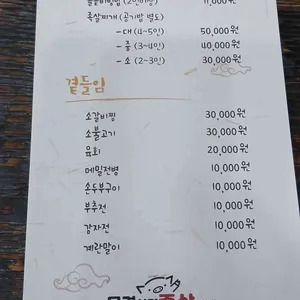 11,000원
(공기밥 별도)
- 대 (4~5인) 50,000원
- 중 (3~4인) 40,000원
- 소 (2~3인) 30,000원
곁들임
소갈비찜 30,000원
소불고기 30,000원
육회 20,000원
메밀전병 10,000원
손두부구이 10,000원
부추전 10,000원
감자전 10,000원
계란말이 10,000원